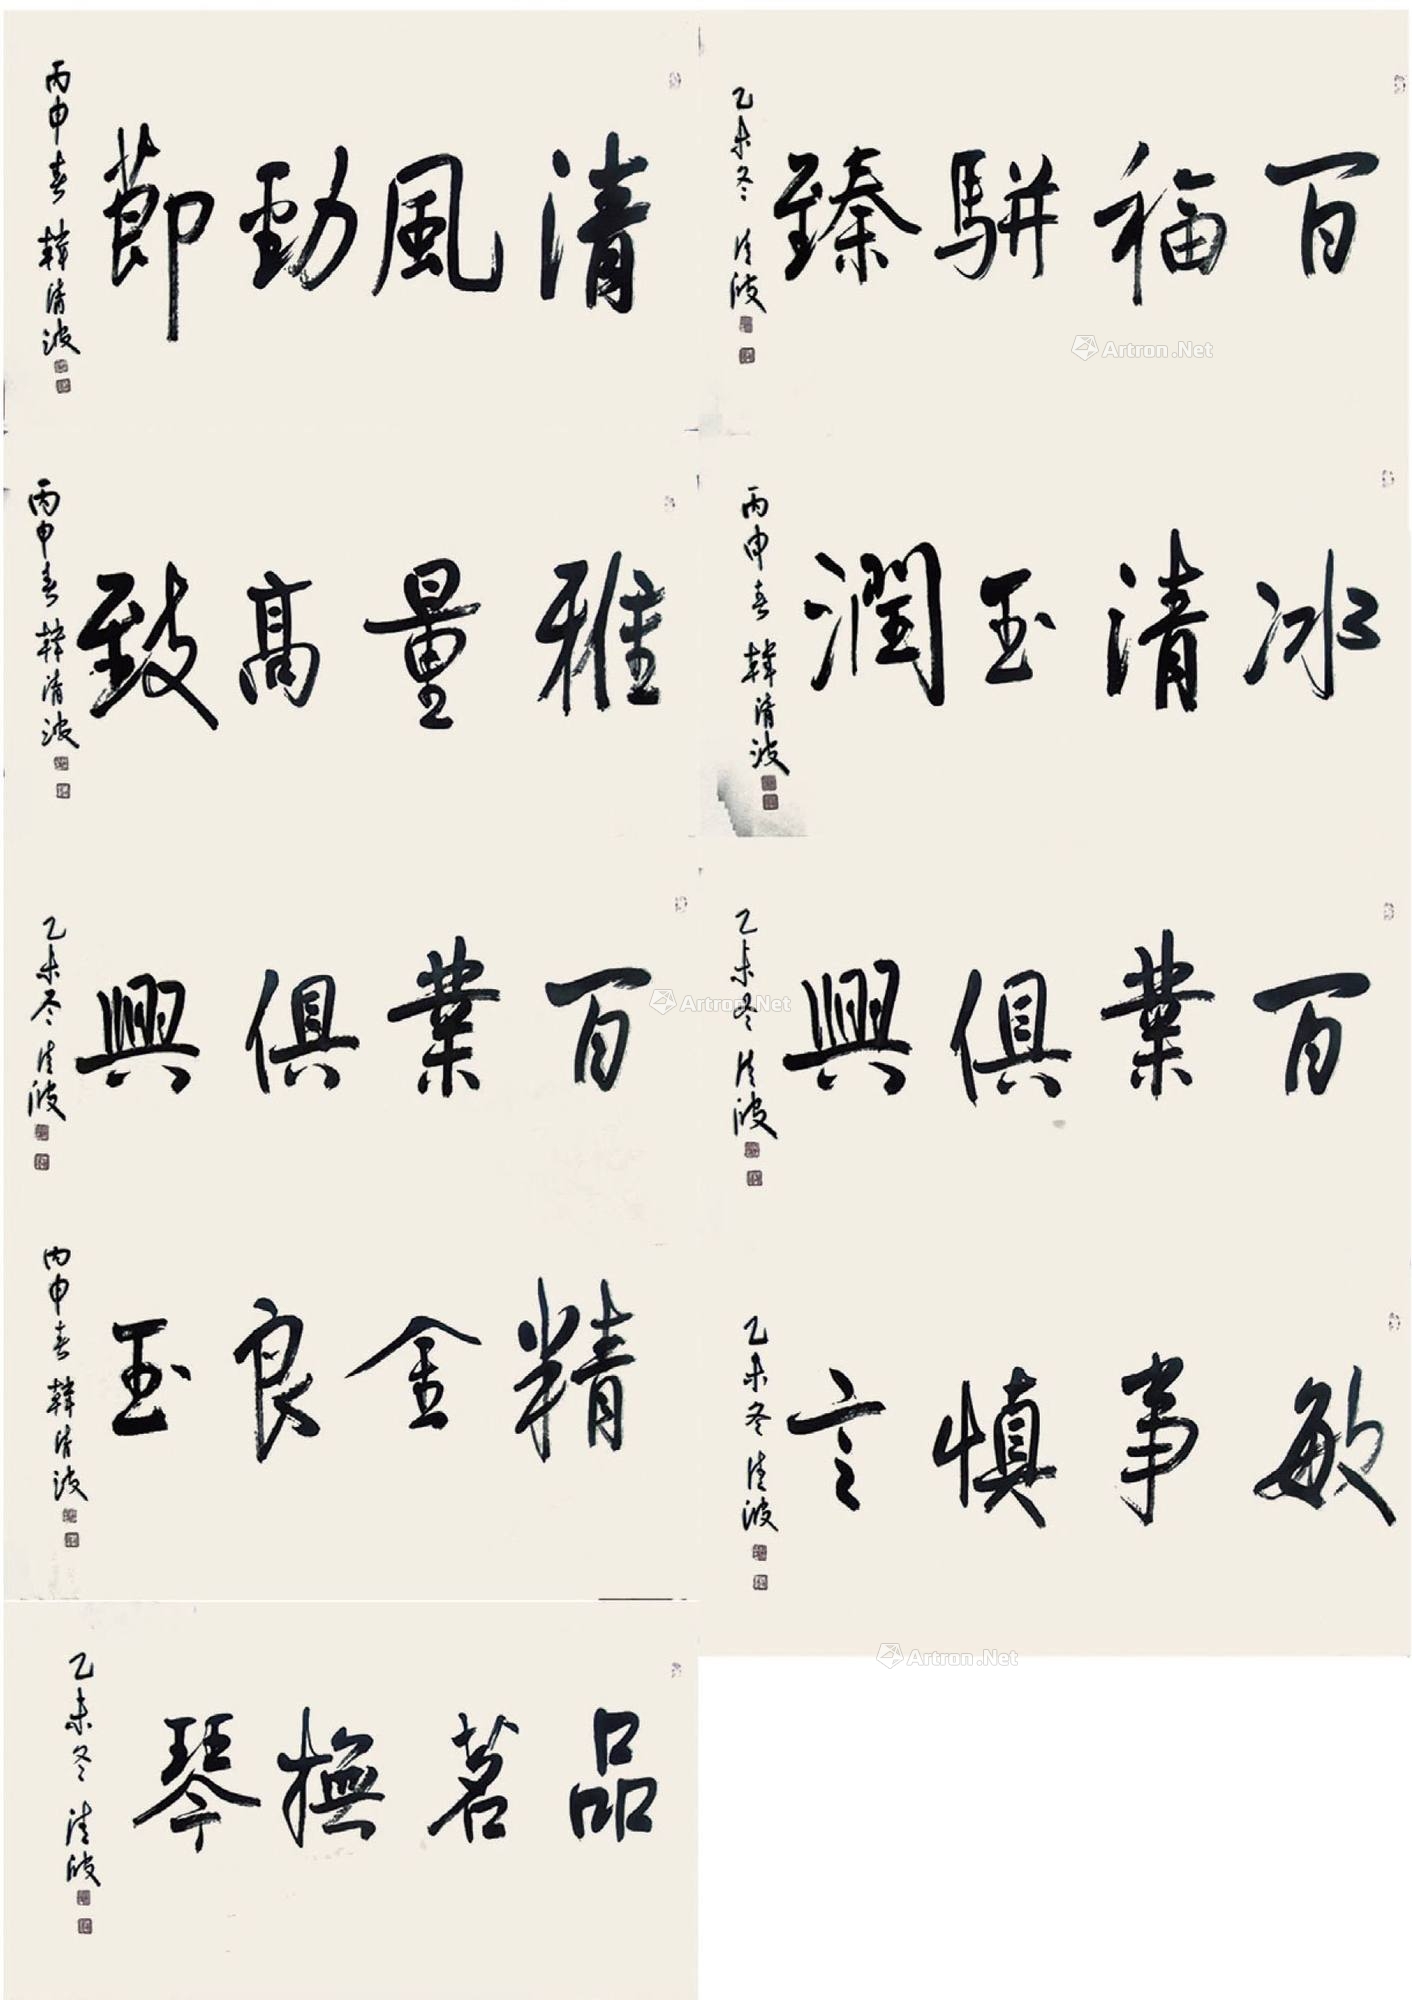 清風勁節
丙申春 韓清波
百福駢臻
乙未冬 清波
Artron.Net
雅量高致
丙申春 韓清波
冰清玉潤
丙申春 韓清波
百業俱興
乙未冬 清波
Artron.Net
百業俱興
乙未冬 清波
精金良玉
丙申春 韓清波
敏事慎言
乙未冬 清波
Artron.Net
品茗撫琴
乙未冬 清波